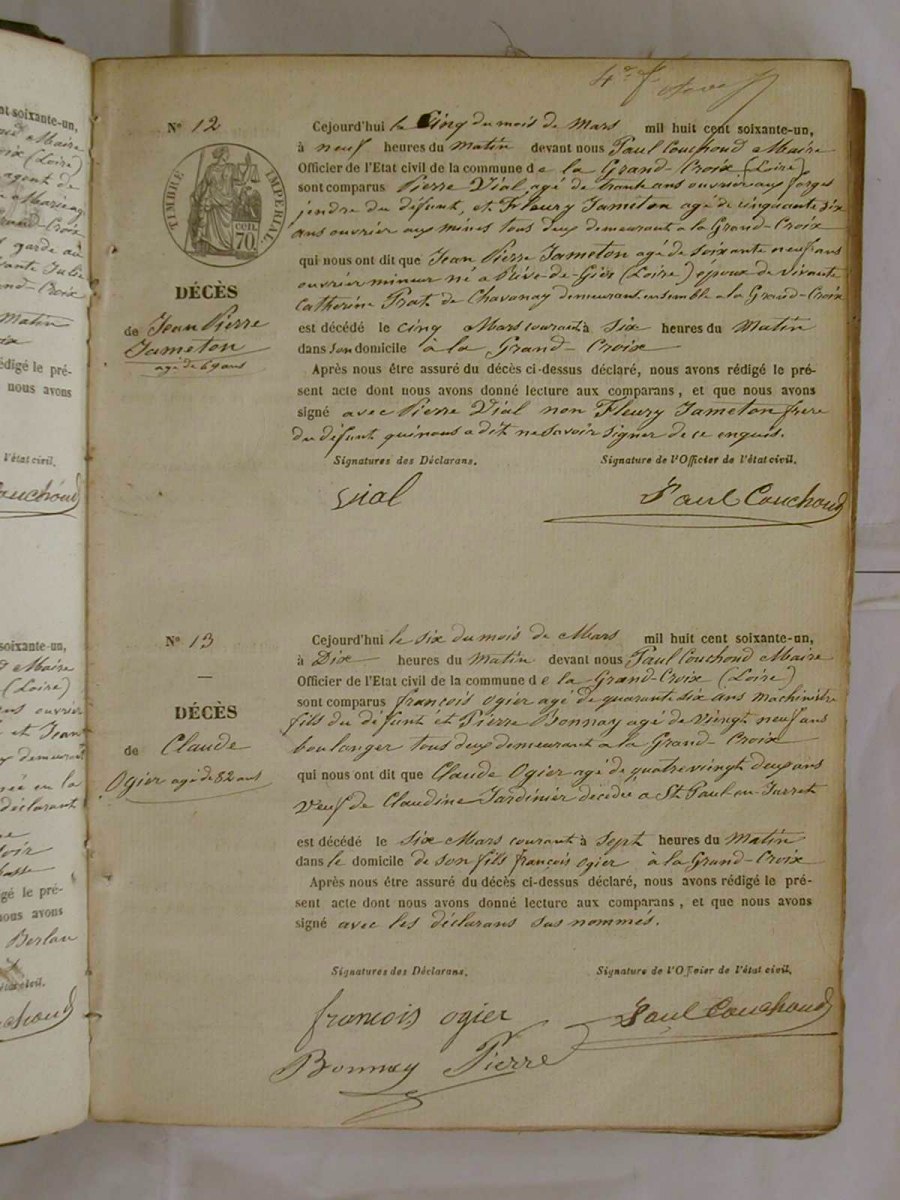 4e f
Nº 12
TIMBRE IMPÉRIAL
70
DÉCÈS
de Jean Pierre
Jameton
agé de 69 ans
Cejourd'hui le Cinq du mois de Mars mil huit cent soixante-un,
à neuf heures du Matin devant nous Paul Couchoud Maire
Officier de l'Etat civil de la commune de la Grand-Croix (Loire)
sont comparus Pierre Vial agé de trente ans ouvrier aux forges
jendre du défunt, et Fleury Jameton agé de cinquante six
ans ouvrier aux mines tous deux demeurant a la Grand-Croix
qui nous ont dit que Jean Pierre Jameton agé de soixante neuf ans
ouvrier mineur né a Rive-de-Gier (Loire) epoux de vivante
Catherine Prat de Chavanay demeurant ensemble a la Grand-Croix
est décédé le cinq Mars courant à Six heures du Matin
dans son domicile à la Grand-Croix
Après nous être assuré du décès ci-dessus déclaré, nous avons rédigé le pré-
sent acte dont nous avons donné lecture aux comparans, et que nous avons
signé avec Pierre Vial non Fleury Jameton frere
du défunt qui nous a dit ne savoir signer de ce enquis.
Signatures des Déclarans. Signature de l'Officier de l'état civil.
Vial Paul Couchoud
Nº 13
DÉCÈS
de Claude
Ogier agé de 82 ans
Cejourd'hui le six du mois de Mars mil huit cent soixante-un,
à Dix heures du Matin devant nous Paul Couchoud Maire
Officier de l'Etat civil de la commune de la Grand-Croix (Loire)
sont comparus françois Ogier agé de quarante six ans machiniste
fils du défunt et Pierre Bonnay agé de vieingt neuf ans
boulanger tous deux demeurant a la Grand-Croix
qui nous ont dit que Claude Ogier agé de quatre vieingt deux ans
veuf de Claudine Jardinier décédée a St Paul-en-Jurret
est décédé le six Mars courant à Sept heures du Matin
dans le domicile de son fils françois Ogier à la Grand-Croix
Après nous être assuré du décès ci-dessus déclaré, nous avons rédigé le pré-
sent acte dont nous avons donné lecture aux comparans, et que nous avons
signé avec les déclarans sus nommés.
Signatures des Déclarans. Signature de l'Officier de l'état civil.
françois ogier Paul Couchoud
Bonnay Pierre